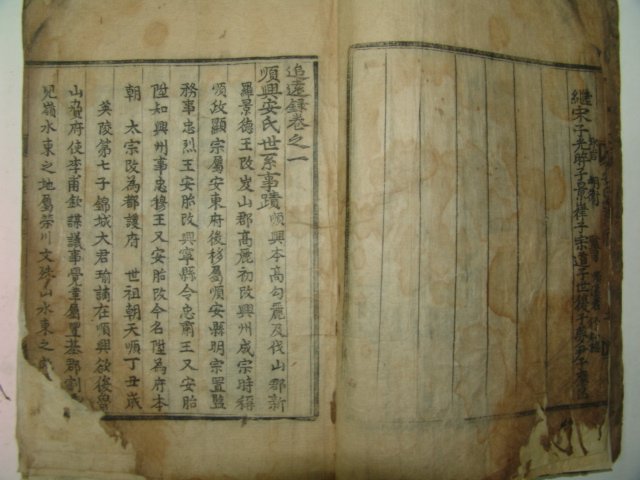 繼宋子光晬子景祥子宗道子世
追遠錄卷之一
順興安氏世系事蹟 順興本高勾麗及伐山郡新
羅景德王改岌山郡高麗初改興州成宗時稱
順政顯宗屬安東府後移屬順安縣明宗置監
務事忠烈王安胎改興寧縣令忠肅王又安胎
陞知興州事忠穆王又安胎改今名陞為府本
朝 太宗改為都護府 世祖朝天順丁丑歲
英陵第七子錦城大君瑜謫在順興欲復魯
山與府使李甫欽謀議事覺革屬豐基郡割
見嶺水東之地屬榮川文殊山水東之